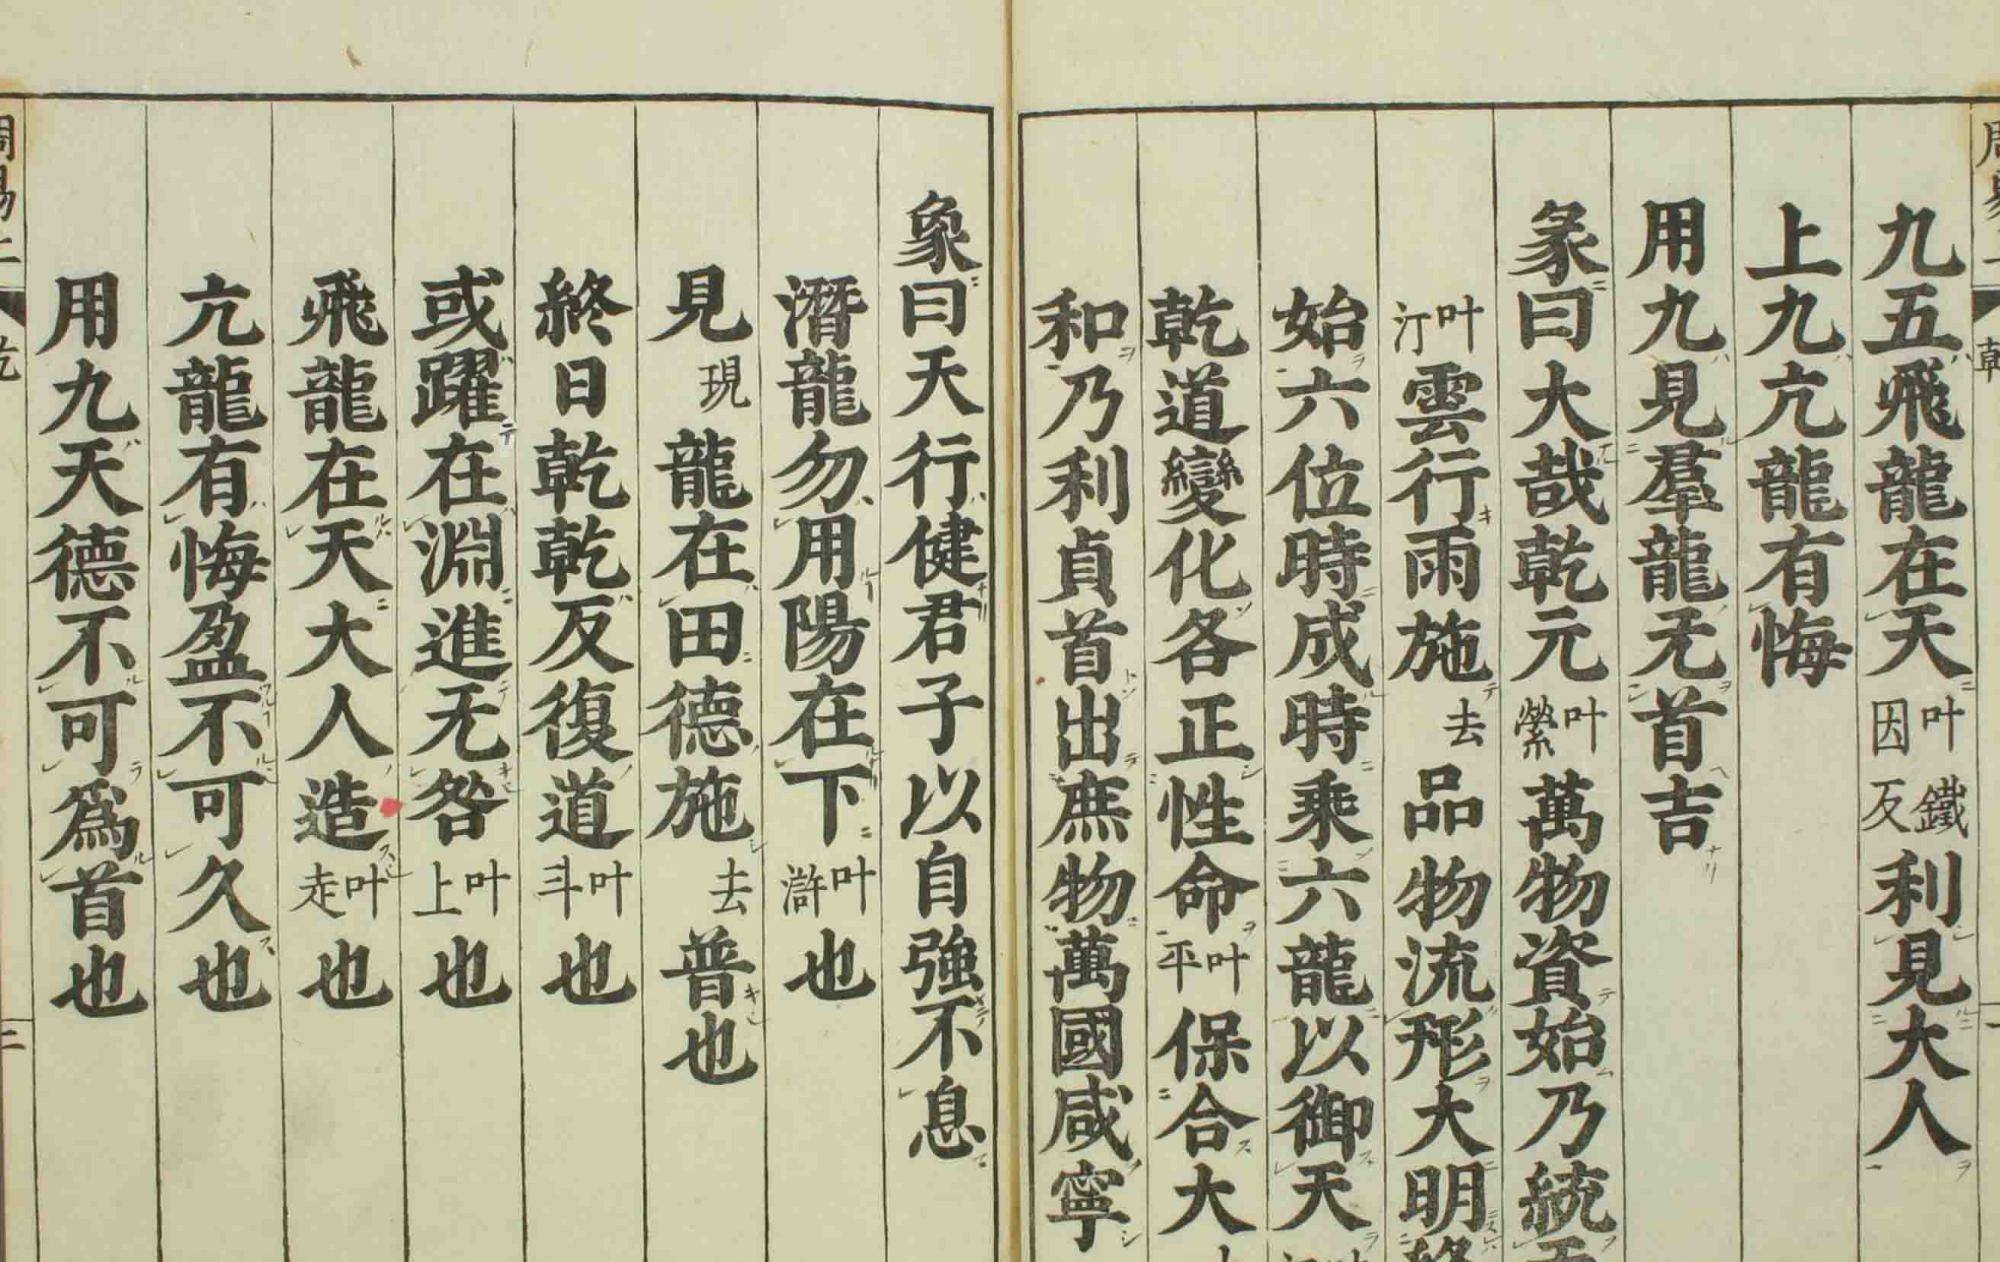 九五飛龍在天叶鐵因反利見大人
上九亢龍有悔
用九見羣龍无首吉
彖曰大哉乾元叶縈萬物資始乃統
叶汀雲行雨施去品物流形大明終
始六位時成時乘六龍以御天
乾道變化各正性命叶平保合大
和乃利貞首出庶物萬國咸寧
象曰天行健君子以自強不息
潛龍勿用陽在下叶滸也
見現龍在田德施去普也
終日乾乾反復道叶斗也
或躍在淵進无咎叶上也
飛龍在天大人造叶走也
亢龍有悔盈不可久也
用九天德不可爲首也